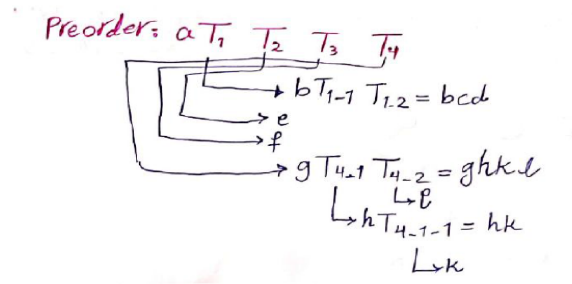 Preorder: a T₁ T₂ T₃ T₄
b T₁₋₁ T₁.₂ = bcd
e
f
g T₄₋₁ T₄₋₂ = ghkl
l
h T₄₋₁₋₁ = hk
k